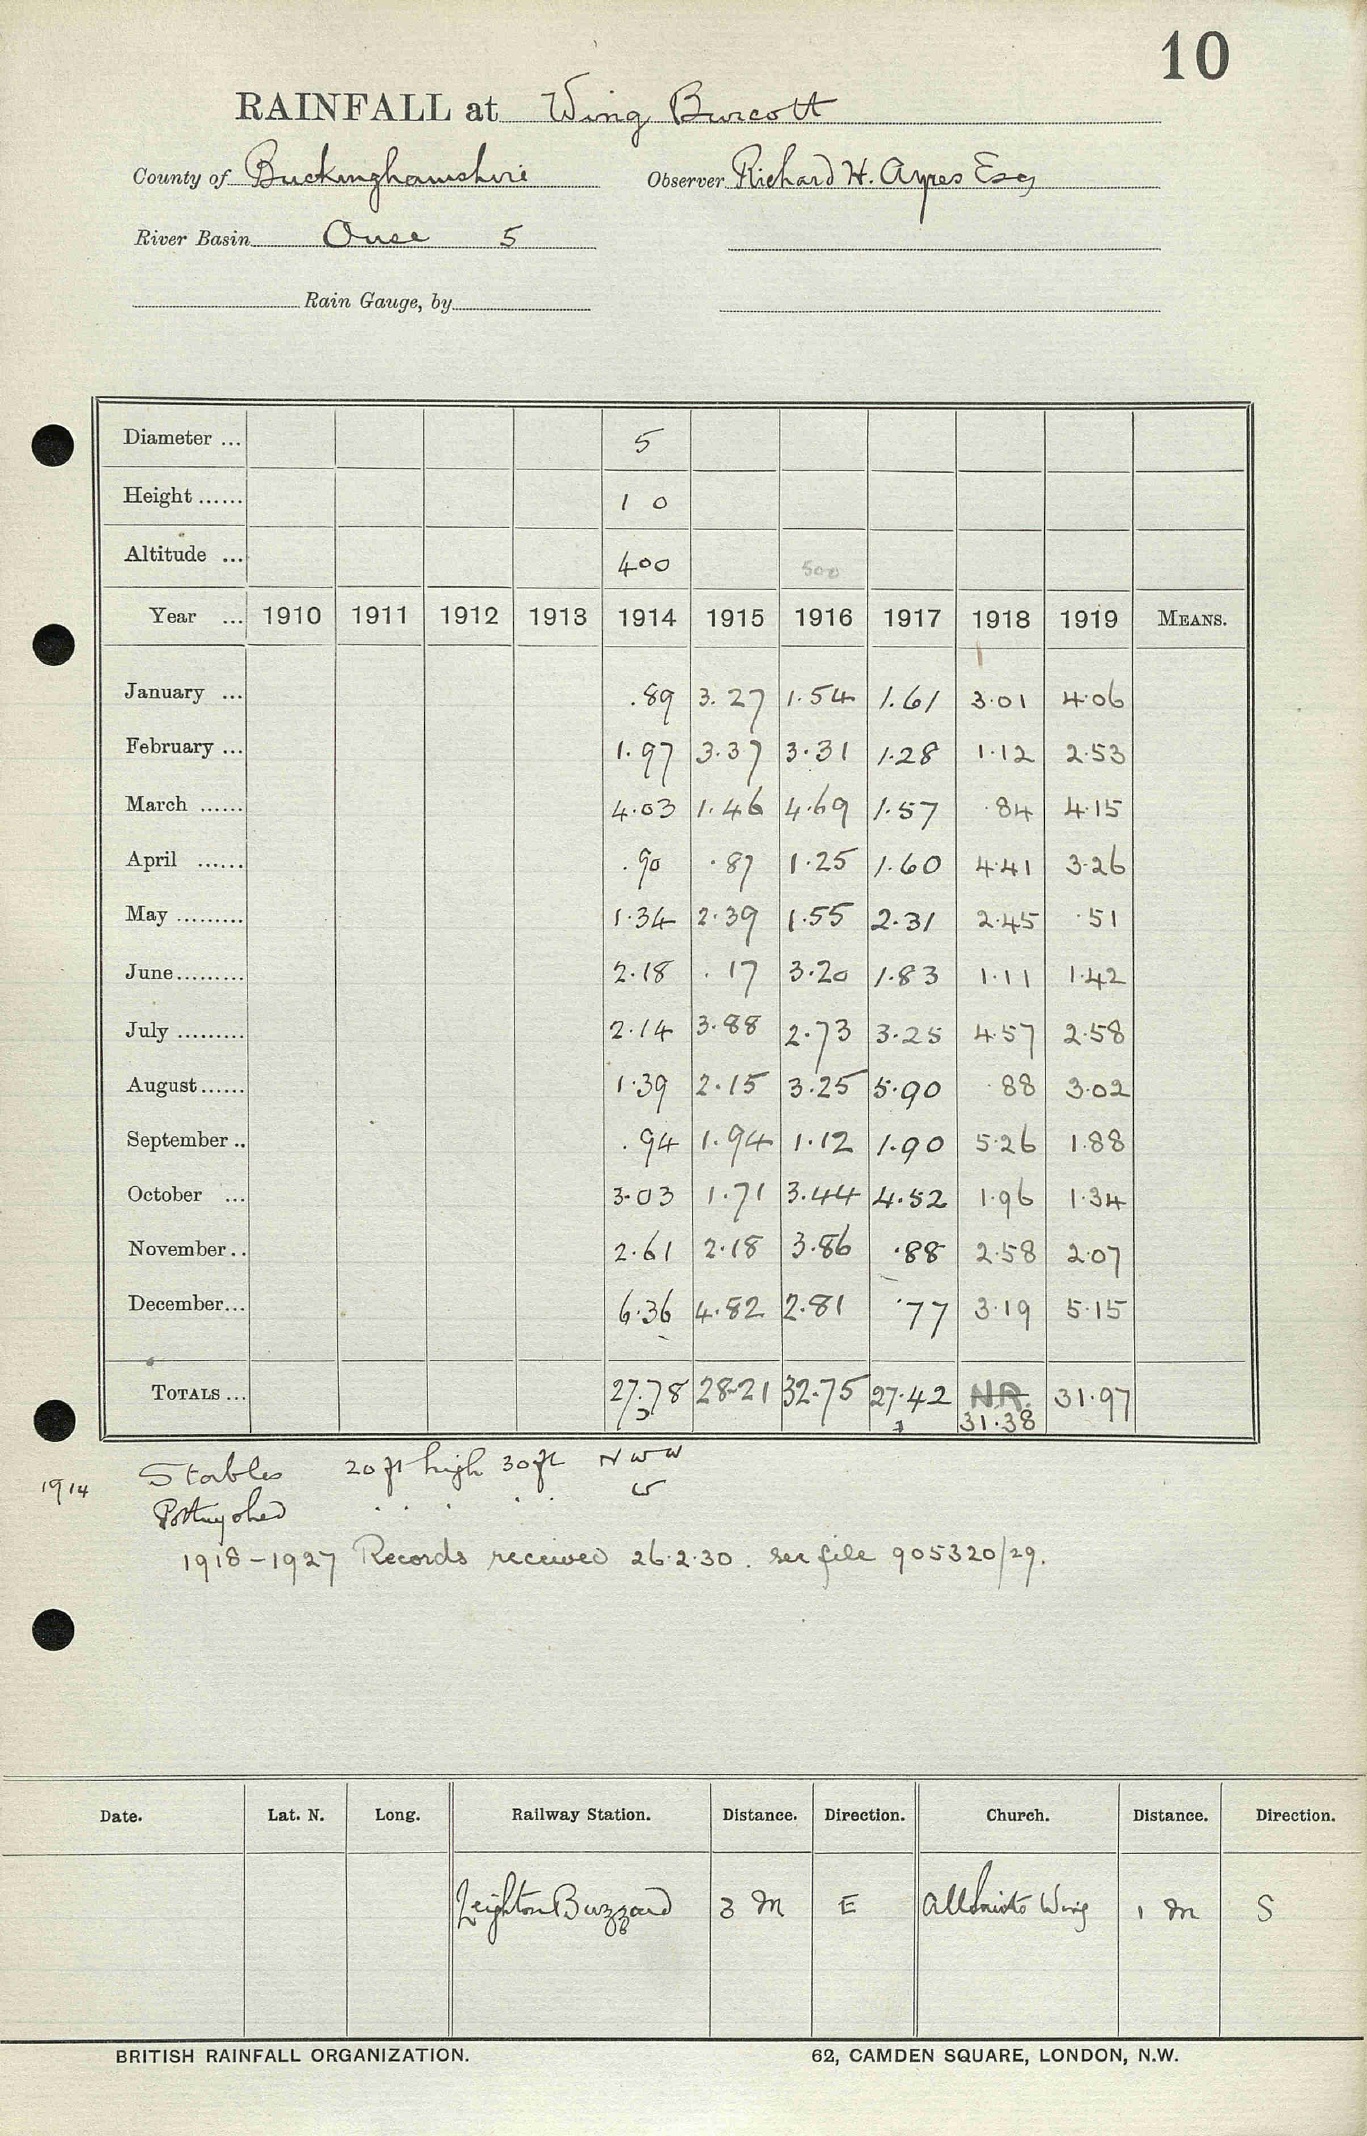 10
RAINFALL at Wing Burcott
County of Buckinghamshire Observer Richard H. Ayres Esq
River Basin Ouse 5
Rain Gauge, by
Diameter ... 5
Height ...... 1 0
Altitude ... 400 500
Year ... 1910 1911 1912 1913 1914 1915 1916 1917 1918 1919 MEANS.
January ... .89 3.27 1.54 1.61 3.01 4.06
February ... 1.97 3.37 3.31 1.28 1.12 2.53
March ...... 4.03 1.46 4.69 1.57 .84 4.15
April ...... .90 .87 1.25 1.60 4.41 3.26
May ......... 1.34 2.39 1.55 2.31 2.45 .51
June......... 2.18 .17 3.20 1.83 1.11 1.42
July ......... 2.14 3.88 2.73 3.25 4.57 2.58
August...... 1.39 2.15 3.25 5.90 .88 3.02
September .. .94 1.94 1.12 1.90 5.26 1.88
October ... 3.03 1.71 3.44 4.52 1.96 1.34
November .. 2.61 2.18 3.86 .88 2.58 2.07
December... 6.36 4.82 2.81 .77 3.19 5.15
TOTALS ... 27.78 28.21 32.75 27.42 N.R. 31.97
31.38
1914 Stables 20 ft high 30 ft N W W
W
1918-1927 Records received 26.2.30. see file 905320/29.
Date. Lat. N. Long. Railway Station. Distance. Direction. Church. Distance. Direction.
Leighton Buzzard 3 M E All Saints Wing 1 M S
BRITISH RAINFALL ORGANIZATION. 62, CAMDEN SQUARE, LONDON, N.W.